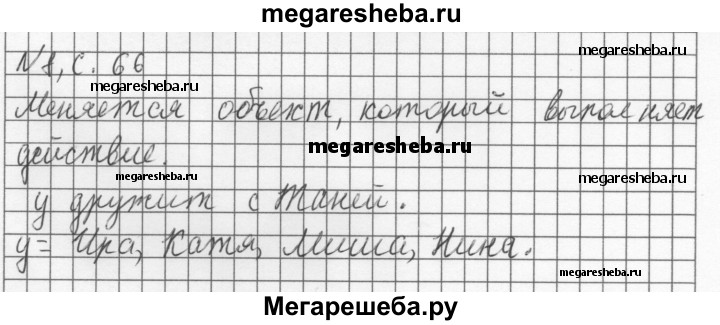 megaresheba.ru
megaresheba.ru
N1, с. 66
megaresheba.ru
Меняется объект, который выполняет
megaresheba.ru
действие.
megaresheba.ru
megaresheba.ru
у дружит с Таней.
у = Ира, Катя, Миша, Нина.
megaresheba.ru
Мегарешеба.ру